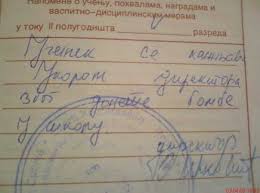 Напомене о учењу, похвалама, наградама и
васпитно-дисциплинским мерама
у току II полугодишта разреда
Ученик се кажњава
Укором директора
због донете бомбе
у школу.
директор